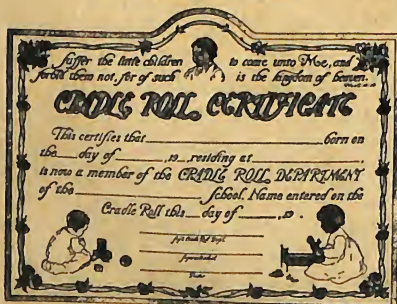 Suffer the little children to come unto Me, and
forbid them not, for of such is the kingdom of heaven.
CRADLE ROLL CERTIFICATE
This certifies that ____ born on
the ___ day of ____, 19 , residing at ____,
is now a member of the CRADLE ROLL DEPARTMENT
of the ____ School. Name entered on the
Cradle Roll this ___ day of ____, 19 .
Superintendent
Pastor